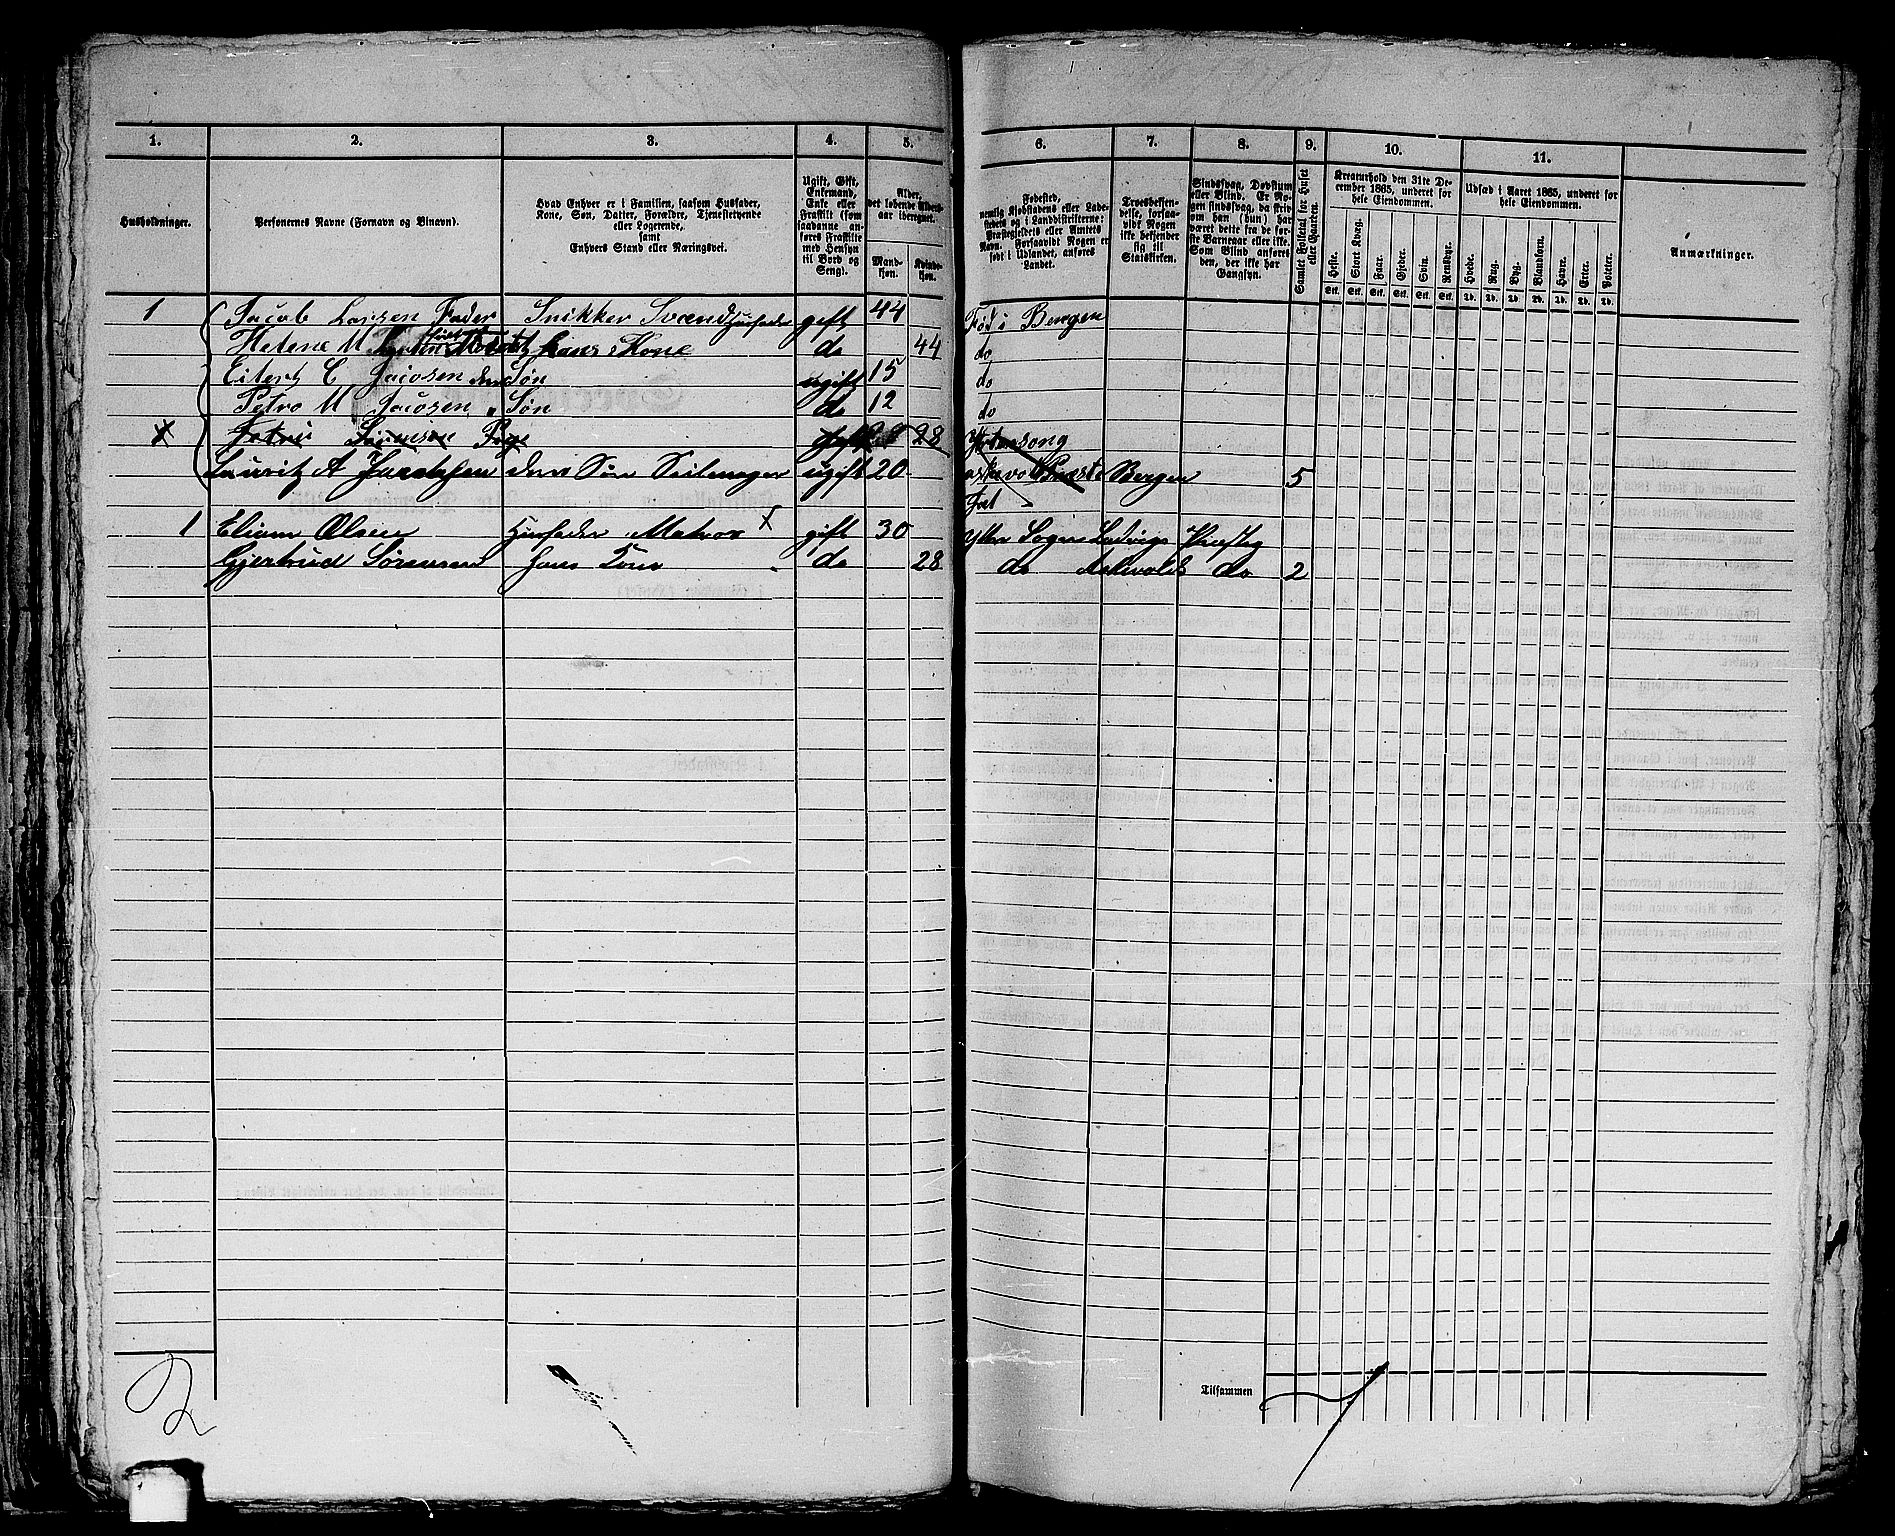 1. 2. 3. 4. 5. 6. 7. 8. 9. 10. 11.
Husholdninger.
Personernes Navne (Fornavn og Tilnavn).
Hvad Enhver er i Familien, saasom Husfader,
Kone, Søn, Datter, Forældre, Tjenestetyende
eller Logerende,
samt
Enhvers Stand eller Næringsvei.
Ugift, Gift,
Enkemand,
Enke eller
Fraskilt (som
saadanne an-
føres Fraskilte
med Hensyn
til Bord og
Seng).
Alder,
det løbende Alders-
aar iberegnet.
Mand-
kjøn.
Kvinde-
kjøn.
Fødested,
nemlig Kjøbstadens eller Lade-
stedets og i Landdistrikterne:
Præstegjeldets eller Amtets
Navn. Forsaavidt Nogen er
født i Udlandet, anføres
Landet.
Troesbekjen-
delse, forsaa-
vidt Nogen
ikke bekjender
sig til
Statskirken.
Sindssvag, Døvstum
eller Blind. Er No-
gen sindssvag, da skriv
om han (hun) har
været dette fra de før-
ste Barneaar eller ikke.
Som Blind anføres
den, der ikke har
Gangsyn.
Samlet Folketal for Huset
eller Gaarden.
Kreaturhold den 31te De-
cember 1865, underet for
hele Eiendommen.
Heste. Stort Kvæg. Faar. Gjeder. Svin. Rensdyr.
Stk. Stk. Stk. Stk. Stk. Stk.
Udsæd i Aaret 1865, underet for
hele Eiendommen.
Hvede. Rug. Byg. Blandkorn. Havre. Erter. Poteter.
Td. Td. Td. Td. Td. Td. Td.
Anmærkninger.
1 Jacob Larsen Fader Snikker Svend Husfader gift 44 Fød i Bergen
Helene M hans Kone do 44 do
Eilert C Jacosen deres Søn ugift 15 do
Petro M Jacosen " Søn do 12 do
28
Lauritz A Jacobsen deres Søn Seilmager ugift 20 Bergen 5
1 Eliam Olsen Husfader Matros X gift 30 Ytre Sogns Ladvigs Præsteg
Gjertrud Sørensen Hans Kone do 28 do Askevolds do 2
Tilsammen
2
7